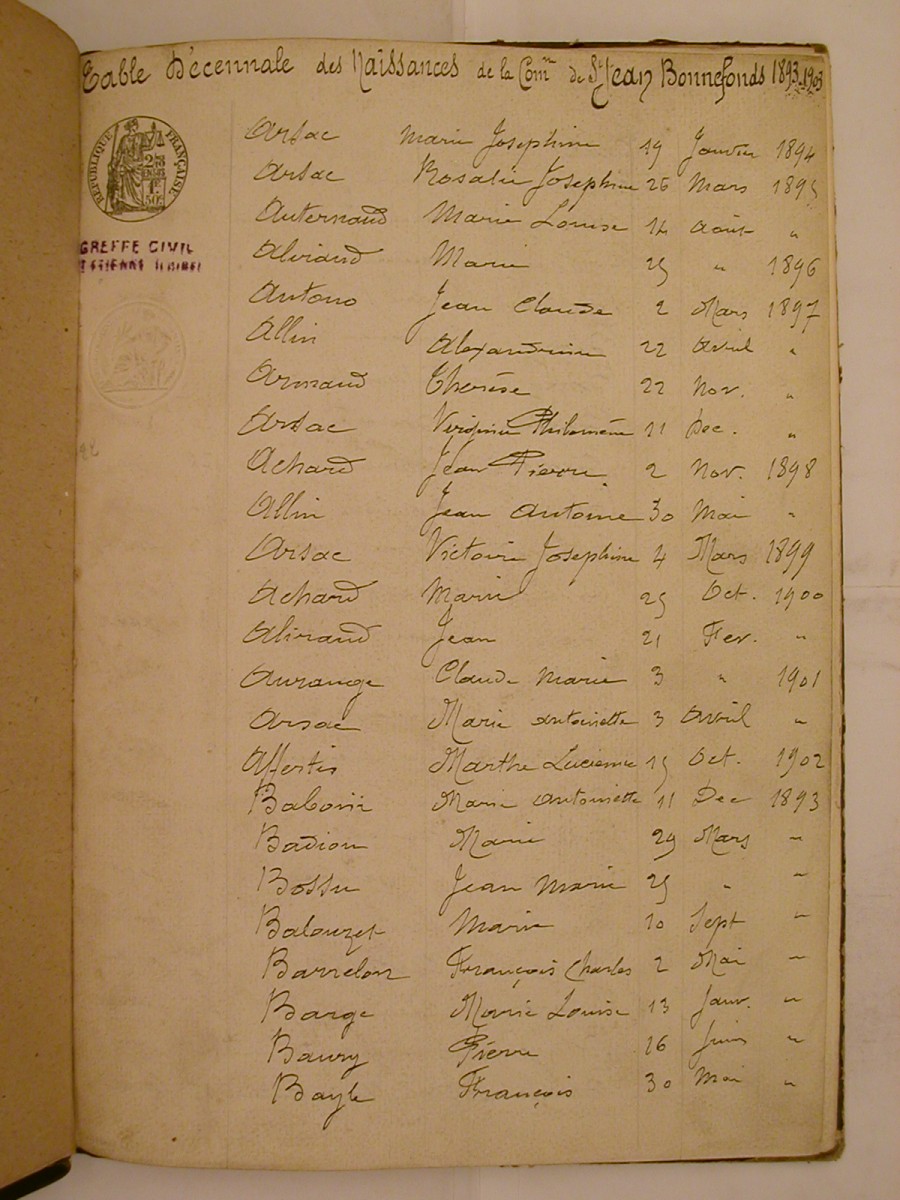 Table Décennale des Naissances de la Comne de St Jean Bonnefonds 1893-1903
RÉPUBLIQUE FRANÇAISE
GREFFE CIVIL
Arsac Marie Josephine 19 Janvier 1894
Arsac Rosalie Josephine 26 Mars 1895
Auternaud Marie Louise 14 Août "
Aliraud Marie 25 " 1896
Antono Jean Claude 2 Mars 1897
Allin Alexandrine 22 Avril "
Armaud Therèse 22 Nov. "
Arsac Virginie Philomène 11 Dec. "
Achard Jean Pierre 2 Nov. 1898
Allin Jean Antoine 30 Mai "
Arsac Victoire Josephine 4 Mars 1899
Achard Marie 25 Oct. 1900
Aliraud Jean 21 Fev. "
Aurange Claude Marie 3 " 1901
Arsac Marie Antoinette 3 Avril "
Affertis Marthe Lucienne 15 Oct. 1902
Marie Antoinette 11 Dec 1893
Badiou Marie 29 Mars "
Bossu Jean Marie 25 " "
Balouzet Marie 10 Sept "
Barrelon François Charles 2 Mai "
Barge Marie Louise 13 Janv. "
Baury Pierre 16 Juin "
Bayle François 30 Mai "